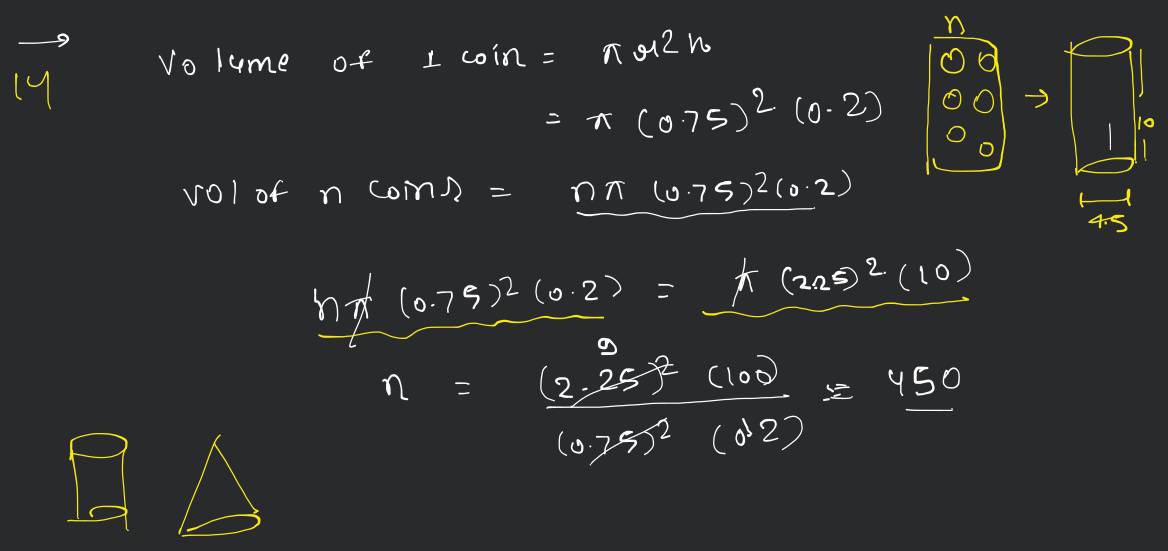 14
Volume of 1 coin = πr2h
= π (0.75)² (0.2)
vol of n coins = nπ (0.75)²(0.2)
nπ (0.75)² (0.2) = π (2.25)² (10)
9
n = (2.25)² (100) / (0.75)² (0.2) = 450
n
10
4.5